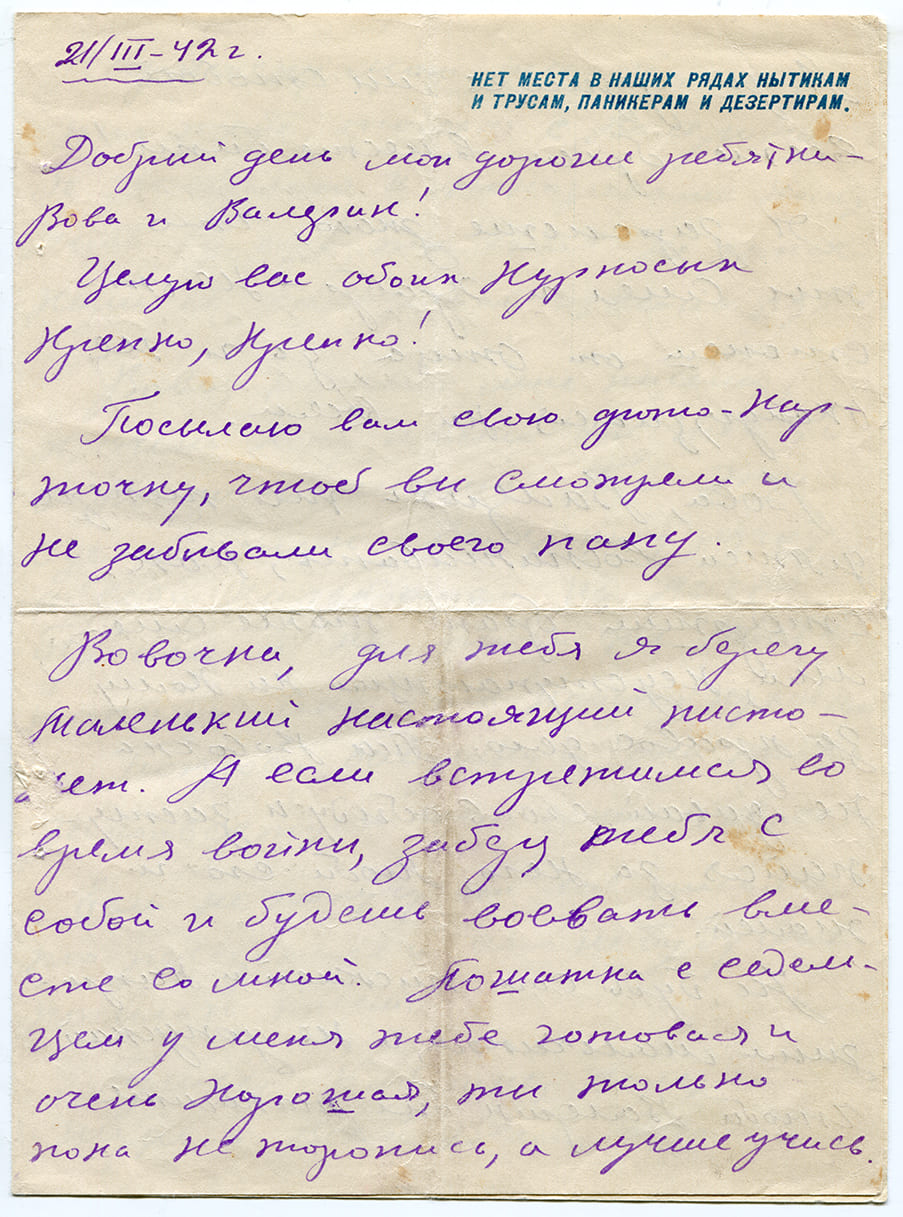 21/III-42 г.
НЕТ МЕСТА В НАШИХ РЯДАХ НЫТИКАМ
И ТРУСАМ, ПАНИКЕРАМ И ДЕЗЕРТИРАМ.
Добрий день мои дорогие ребятки-
Вова и Валерик!
Целую вас обоих Курносых
Крепко, Крепко!
Посылаю вам свою фото-кар-
точку, чтоб ви смотрели и
не забивали своего папу.
Вовочка, для тебя я берегу
маленький настоящий писто-
лет. А если встретимся во
время войни, заберу тебя с
собой и будешь воевать вме-
сте со мной. Лошатка с седел-
цем у меня тебе готовая и
очень хорошая, ти только
пока не торопись, а лучше учись.